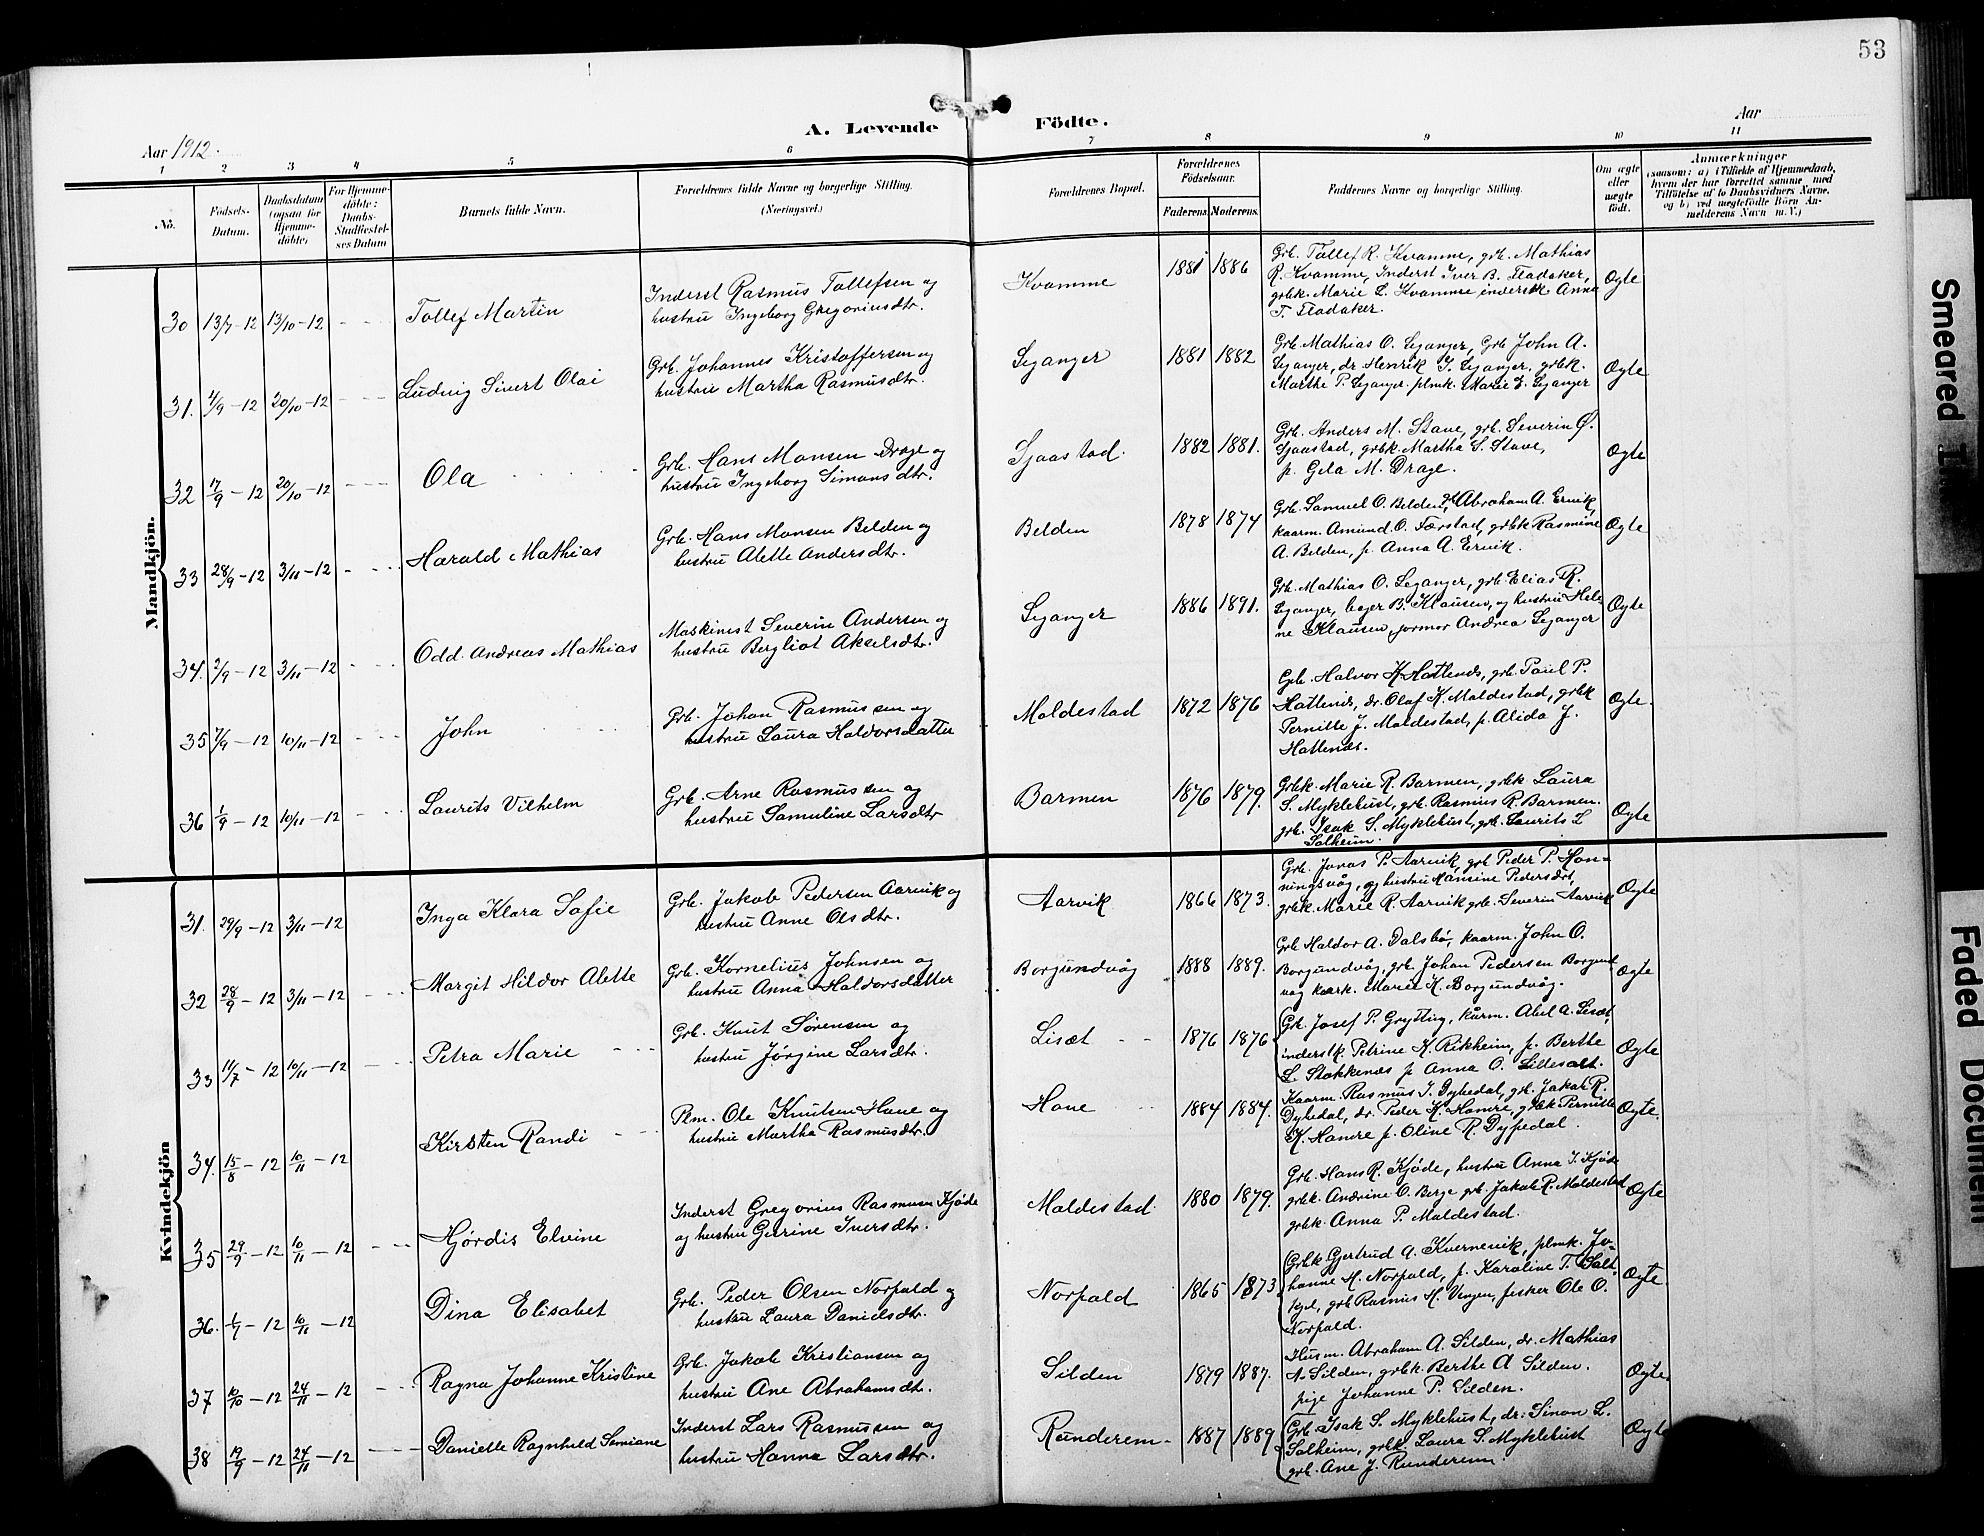 53
A. Levende Födte.
Aar 1912.
Aar
1 2 3 4 5 6 7 8 9 10 11
No.
Födsels-Datum.
Daabsdatum (ogsaa for Hjemme-döbte)
For Hjemme-döbte: Daabs-Stadfæstel-ses Datum
Barnets fulde Navn.
Forældrenes fulde Navne og borgerlige Stilling.
(Næringsvei.)
Forældrenes Bopæl.
Forældrenes Födselsaar.
Faderens. Moderens.
Faddernes Navne og borgerlige Stilling.
Om ægte eller uægte født.
Anmærkninger
(saasom: a) i Tilfælde af Hjemmedaab,
hvem der har forrettet samme, med
Tilføielse af to Daabsvidners Navne,
og b) ved uægtefødte Börn An-
melderens Navn m.V.)
Mandkjön.
30 13/7-12 13/10-12 Tollef Martin
Inderst Rasmus Tollefsen og
hustru Ingeborg Gregoriusdtr.
Kvamme 1881 1886
Grb. Tollef R. Kvamme, grb. Mathias
R. Kvamme, Inderst Iver B. Fladaker,
grbk. Marie L. Kvamme inderstk Anna
T. Fladaker.
Ægte
31. 4/9-12 20/10-12 Ludvig Sivert Olai
Grb. Johannes Kristoffersen og
hustru Martha Rasmusdtr.
Leganger 1881 1882
Grb. Mathias O. Leganger, Grb John A.
Leganger, dr. Henrik J. Leganger, grbk.
Marthe P. Leganger. plmk. Marie J. Leganger
Ægte
32 17/9-12 20/10-12 Ola
Grb. Hans Monsen Drage og
hustru Ingeborg Simonsdtr.
Sjaastad. 1882 1881.
Grb. Anders M. Stave, grb. Severin Ø.
Sjaastad, grbk. Martha S. Stave,
p. Gela M. Drage.
Ægte
33 28/9-12 3/11-12 Harald Mathias
Grb. Hans Monsen Belden og
hustru Alette Andersdtr.
Belden 1878 1874
Grb. Samuel O. Belden, Abraham A. Ervik,
kaarm. Amund O. Færstad, grbk Rasmine
A. Belden, p. Anna A. Ervik.
Ægte
34. 2/9-12 3/11-12 Odd Andreas Mathias
Maskinist Severin Andersen og
hustru Bergliot Akselsdtr.
Leganger 1886 1891.
Grb. Mathias O. Leganger, grb. Elias R.
Leganger, B. Klausen, og hustru Hele
ne Klausen, jormor Andrea Leganger
Ægte
35 7/9-12 10/11-12 John
Grb. Johan Rasmussen og
hustru Laura Haldorsdatter
Moldestad 1872 1876
Grb. Halvor K. Hatlenes, grb. Paul P.
Hatlenes, dr. Olaf K. Maldestad, grbk
Pernille J. Maldestad, p. Alida J.
Hatlenes.
Ægte.
36 1/9-12 10/11-12 Laurits Vilhelm
Grb. Arne Rasmussen og
hustru Samuline Larsdtr
Barmen 1876 1879.
Grbk. Marie R. Barmen, grbk Laura
S. Myklebust, grb. Rasmus R. Barmen.
grb. Isak S. Myklebust, grb. Laurits L
Salheim.
Ægte
Kvindekjön
31. 29/9-12 3/11-12 Inga Klara Sofie
Grb. Jakob Pedersen Aarvik og
hustru Anne Olsdtr.
Aarvik 1866 1873.
Grb. Jonas P. Aarvik, grb Peder P. Hon-
ningsvåg, og hustru Hansine Pedersdtr,
grbk. Marie R. Aarvik grb. Severin Aarvik
Ægte
32 28/9-12 3/11-12 Margit Hildor Alette
Grb. Kornelius Johnsen og
hustru Anna Haldorsdatter
Borgundvåg 1888 1889.
Grb Haldor A. Dalsbø, kaarm. John O.
Borgundvåg, grb. Johan Pedersen Borgund
våg kaark. Marie K. Borgundvåg.
ægte
33 11/7-12 10/11-12 Petra Marie
Grb. Knut Sørensen og
hustru Jørgine Larsdtr.
Lisæt 1876 1876
Grb. Josef P. Grytting, kårm. Abel A. Lisæt,
inderstk. Petrine K. Rikheim, p. Berthe
L. Stokkenes p Anna O. Lillesæt.
Ægte
34. 15/8-12 10/11-12 Kirsten Randi
Plm. Ole Knutsen Hove og
hustru Martha Rasmusdtr.
Hove 1884 1884.
Kaarm. Rasmus I. Dyhedal, grb. Jakob R.
Dyhedal, dr. Peder K. Hamre, grbk Pernille
K. Hamre p. Oline R. Dypedal.
Ægte.
35 29/9-12 10/11-12 Hjørdis Elvine
Inderst Gregorius Rasmusen Kjøde
og hustru Gurine Iversdtr.
Maldestad. 1880 1879.
Grb. Hans R. Kjøde, hustru Anna I. Kjøde
grbk. Andrine O. Berge grb. Jakob R. Maldestad
grbk. Anna P. Maldestad.
Ægte
36. 6/7-12 10/11-12 Dina Elisabet
Grb. Peder Olsen Norpald og
hustru Laura Danielsdtr.
Norpald 1865 1873
Grbk. Gjertrud A. Kvernevik, plmk. Jo-
hanne H. Norpald, p. Karoline T. Salt-
grb Rasmus H. Vengen, fisker Ole O.
Norpald.
Ægte.
37 10/10-12 24/11-12 Ragna Johanne Kristine
Grb. Jakob Kristiansen og
hustru Ane Abrahamsdtr.
Silden 1879 1887.
Husm. Abraham A. Silden, dr. Mathias
A. Silden, grbk. Berthe A Silden.
pige Johanne P. Silden.
Ægte.
38 19/9-12 24/11-12 Danielle Ragnhild Semiane
Inderst Lars Rasmusen og
hustru Hanna Larsdtr.
Runderem 1887 1889
Grb. Isak S. Myklebust, dr. Simon L.
Salheim, grbk. Laura S. Myklebust
grb. Ane J. Runderem.
Ægte
Smeared
Faded Document